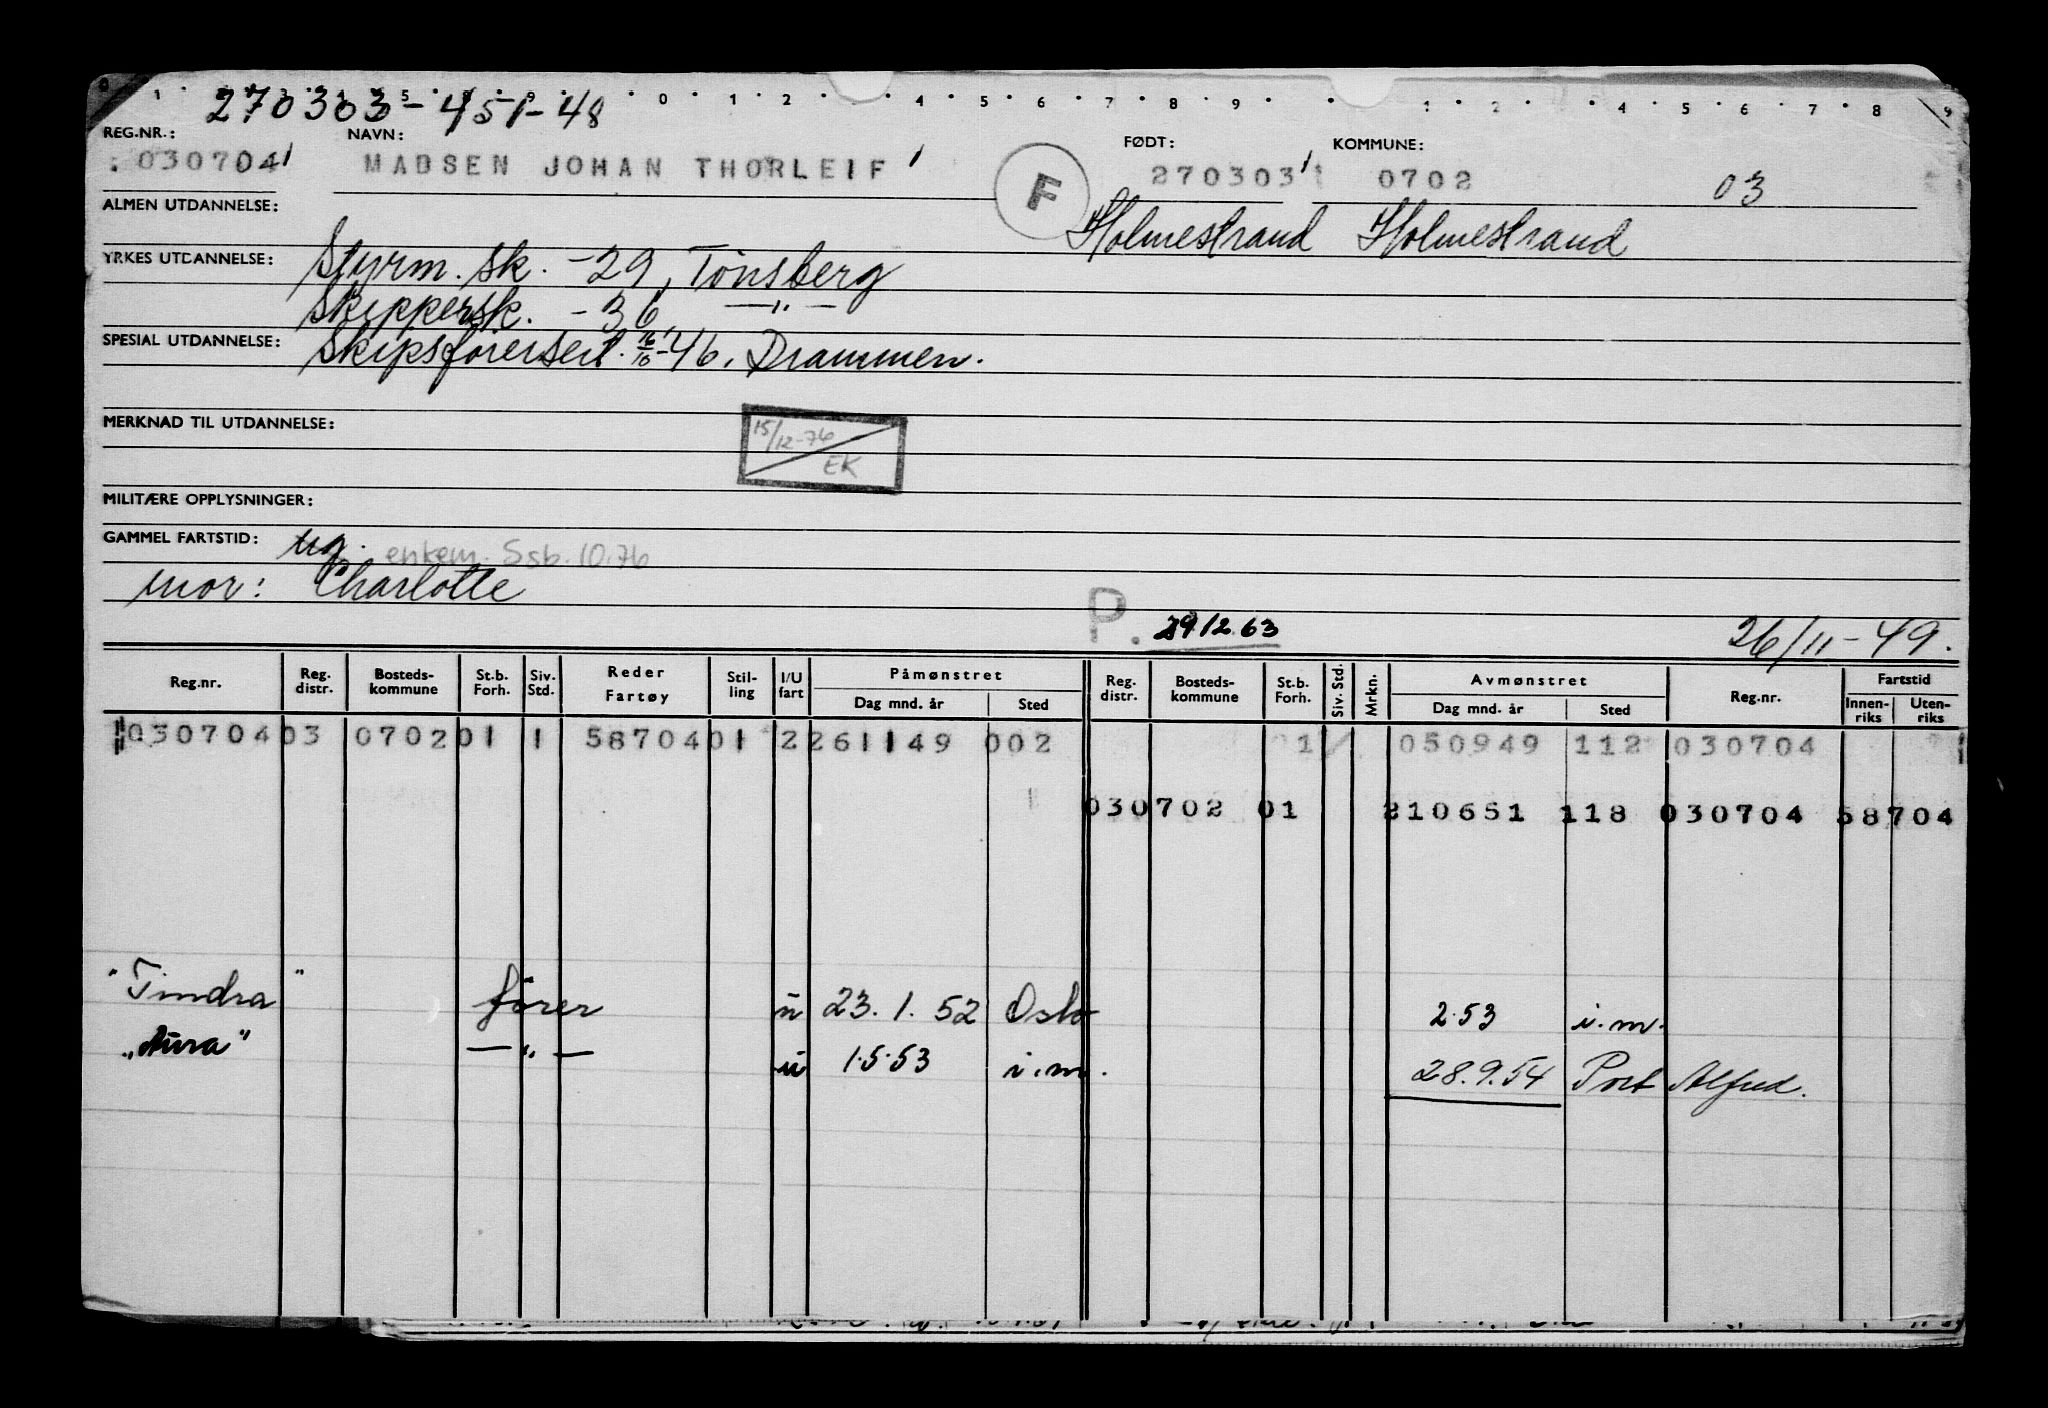 270303-451-48
REG.NR.: NAVN: FØDT: KOMMUNE:
030704 MADSEN JOHAN THORLEIF F 270303 0702 03
ALMEN UTDANNELSE: Holmestrand Holmestrand
YRKES UTDANNELSE: Styrm. sk. -29, Tønsberg
Skippersk. -36 —"—
SPESIAL UTDANNELSE: Skipsførersert. 16/10-46. Drammen.
MERKNAD TIL UTDANNELSE: 15/12-76
EK
MILITÆRE OPPLYSNINGER:
GAMMEL FARTSTID: ug. enkem. Ssb. 10.76
mor: Charlotte
P. 29.12.63 26/11-49.
Reg.nr. Reg. distr. Bosteds-kommune St.b. Forh. Siv. Std. Reder Fartøy Stil-ling I/U fart Påmønstret Dag mnd. år Sted Reg. distr. Bosteds-kommune St.b. Forh. Siv. Std. Mrkn. Avmønstret Dag mnd. år Sted Reg.nr. Fartstid Innen-riks Uten-riks
030704 03 0702 01 1 58704 01 2 261149 002 01 050949 112 030704
030702 01 210651 118 030704 58704
"Tindra" fører u 23.1.52 Oslo 2.53 i.m.
"Aura" —"— u 1.5.53 i.m. 28.9.54 Port Alfred.